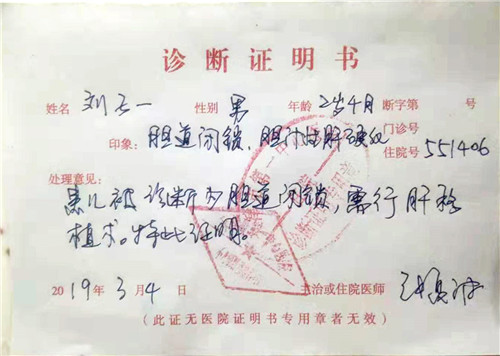 诊断证明书
姓名 刘 一 性别 男 年龄 2岁4月 断字第 号
门诊号
印象: 胆道闭锁、胆汁性肝硬化
住院号 551406
处理意见:
患儿被诊断为胆道闭锁,需行肝移
植术。特此证明。
2019年3月4日 主治或住院医师
(此证无医院证明书专用章者无效)